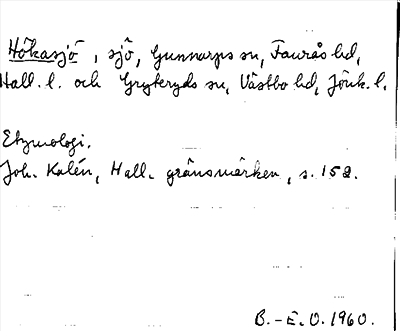 Hökasjö, sjö, Gunnarps sn, Faurås hd,
Hall. l. och Gryteryds sn, Västbo hd, Jönk. l.
Etymologi.
Joh. Kalén, Hall. gränsmärken, s. 158.
B.-E.O. 1960.